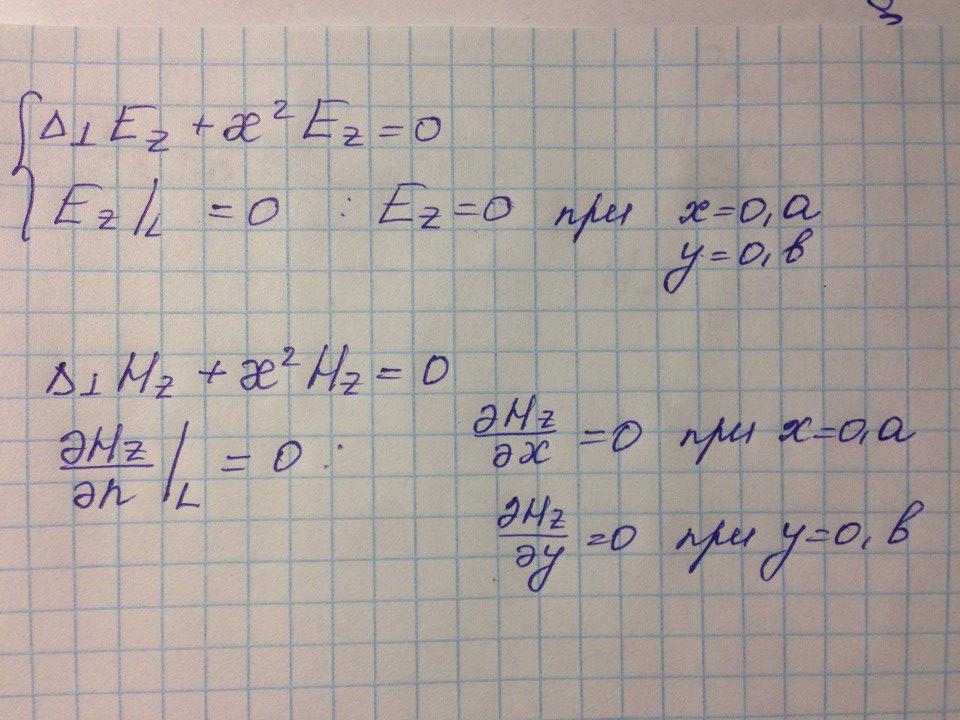 Δ⊥ E_z + æ² E_z = 0
E_z |_L = 0 : E_z = 0 при x = 0, a
y = 0, в
Δ⊥ H_z + æ² H_z = 0
∂H_z/∂n |_L = 0 : ∂H_z/∂x = 0 при x = 0, a
∂H_z/∂y = 0 при y = 0, в